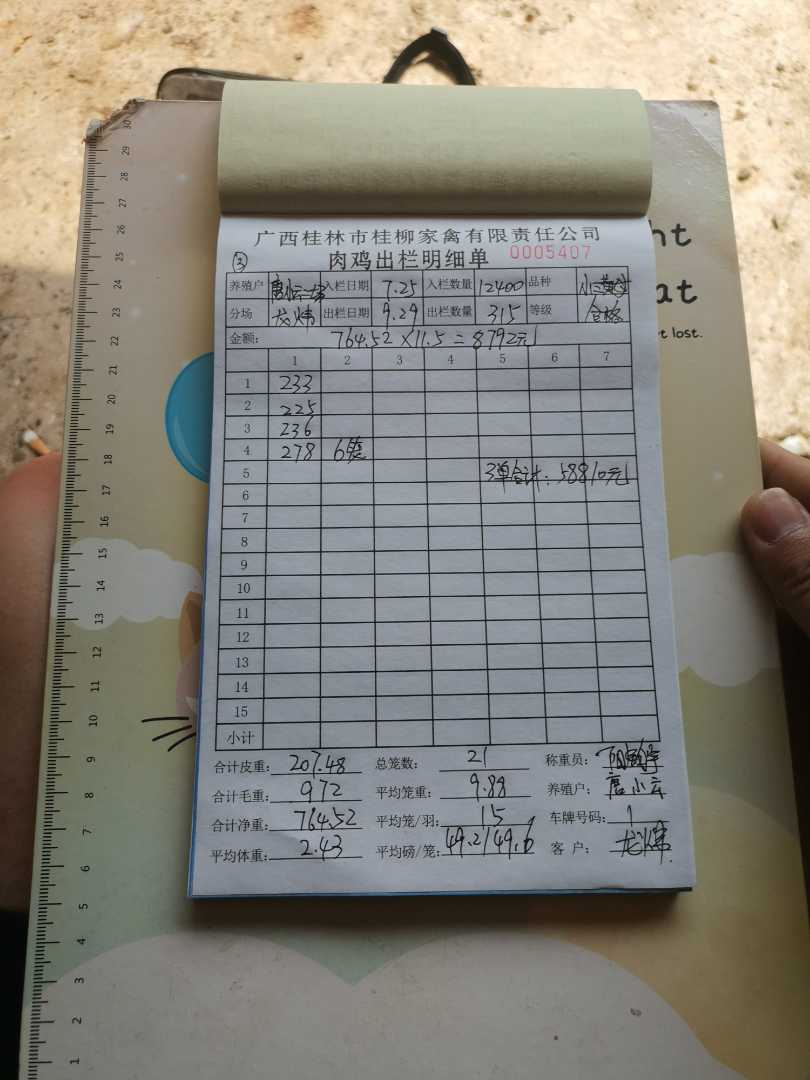 ht
at
t lost.
广西桂林市桂柳家禽有限责任公司
③ 肉鸡出栏明细单 0005407
养殖户 入栏日期 7.25 入栏数量 12400 品种
分场 龙炜 出栏日期 9.29 出栏数量 315 等级 合格
金额: 764.52×11.5=8792元
1 2 3 4 5 6 7
1 233
2 225
3 236
4 278 6笼
5 3单合计:58810元
6
7
8
9
10
11
12
13
14
15
小计
合计皮重: 207.48 总笼数: 21 称重员:
合计毛重: 972 平均笼重: 9.88 养殖户: 唐小云
合计净重: 764.52 平均笼/羽: 15 车牌号码: 1
平均体重: 2.43 平均磅/笼: 49.2/49.6 客户: 龙炜
30
29
28
27
26
25
24
23
22
21
20
19
18
17
16
15
14
13
12
11
10
9
8
7
6
5
4
3
2
1